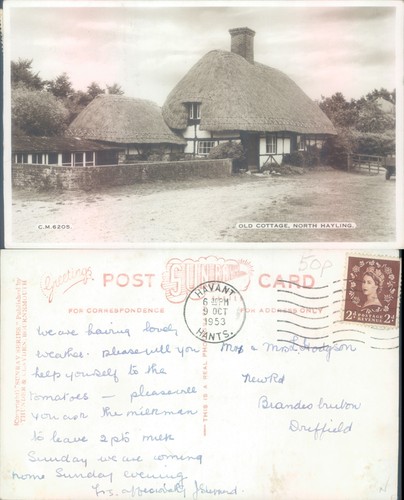 C.M.8205.
OLD COTTAGE, NORTH HAYLING.
50p
Greetings
POST SUNRAY CARD
FOR CORRESPONDENCE
FOR ADDRESS ONLY
HAVANT
6 PM
9 OCT
1953
HANTS.
2D POSTAGE REVENUE 2D
THIS IS A REAL
We are having lovely
weather. please will you
help yourself to the
tomatoes — please will
you ask the milkman
to leave 2 pts milk
Sunday we are coming
home Sunday evening
Mr & Mrs Hodgson
New Rd
Brandesburton
Driffield